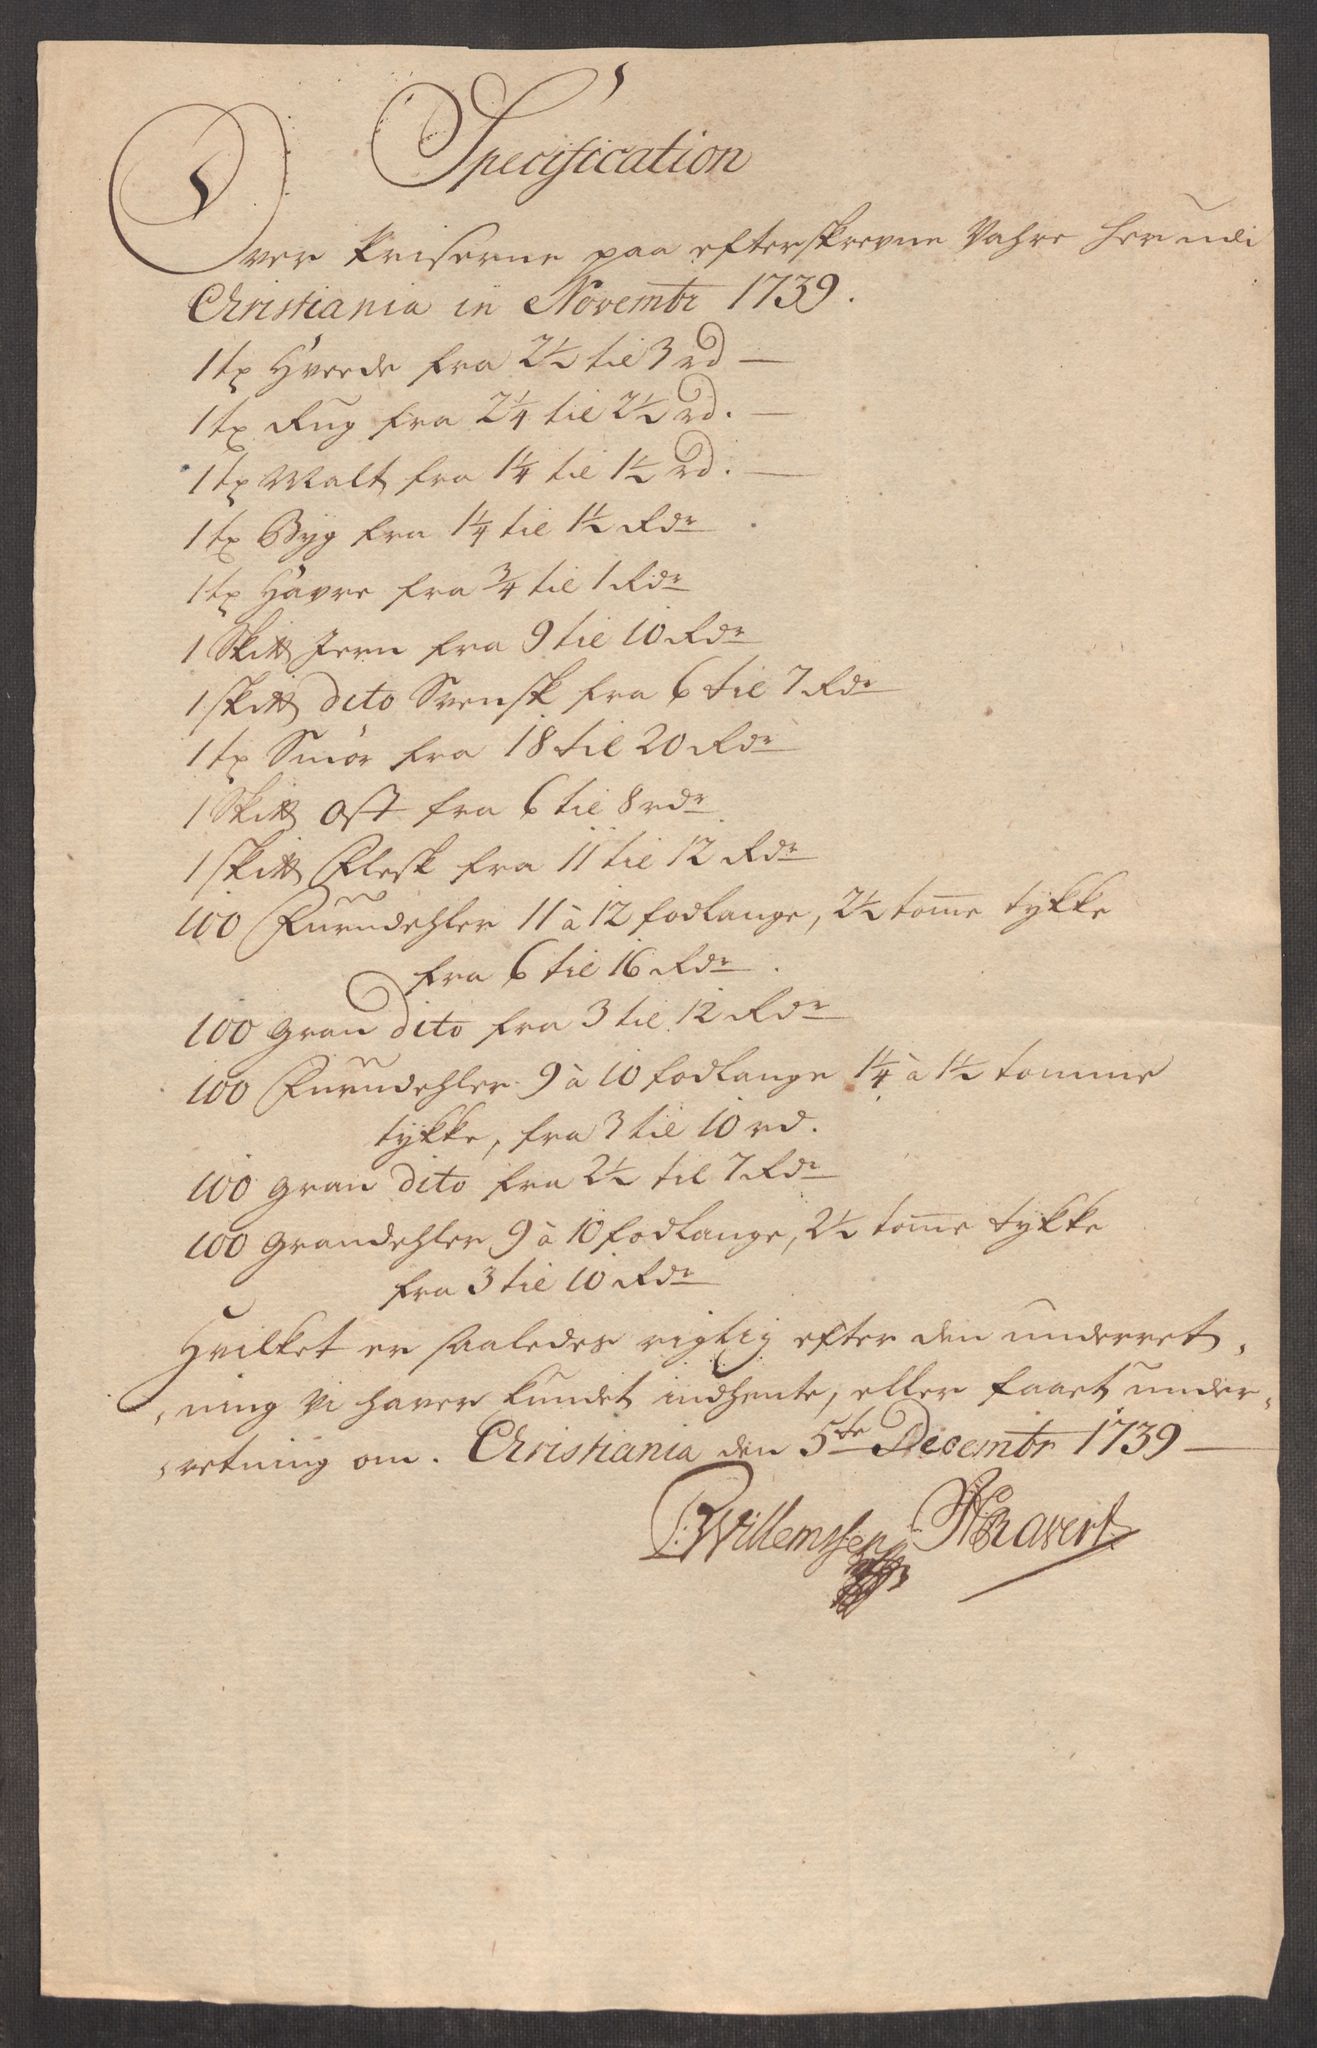 Specification
Over Priserne paa efterskrevne Vahre her udi
Christiania in Novembr 1739.
1 tp Hvede fra 2½ til 3 rd
1 tp Rug fra 2¼ til 2½ rd.
1 tp Malt fra 1¼ til 1½ rd.
1 tp Byg fra 1¼ til 1½ Rdr
1 tp Havre fra ¾ til 1 Rdr
1 Sk℔ Jern fra 9 til 10 Rdr
1 sk℔ dito Svensk fra 6 til 7 Rdr
1 tp Smør fra 18 til 20 Rdr
1 Sk℔ Ost fra 6 til 8 rdr
1 sk℔ Flesk fra 11 til 12 Rdr
100 Furudehler 11 à 12 fodlange, 2½ tom̅e tykke
fra 6 til 16 Rdr.
100 gran dito fra 3 til 12 Rdr
100 Furudehler 9 à 10 fodlange 1¼ à 1½ tomme
tykke, fra 3 til 10 rd.
100 gran dito fra 2½ til 7 Rdr
100 grandehler 9 à 10 fodlange, 2½ tom̅e tykke
fra 3 til 10 Rdr
Hvilket er saaledes rigtig efter den underret,
,ning vi haver kundet indhente, eller faaet under,
,retning om. Christiania den 5te Decembr 1739
Willemssen Ravert